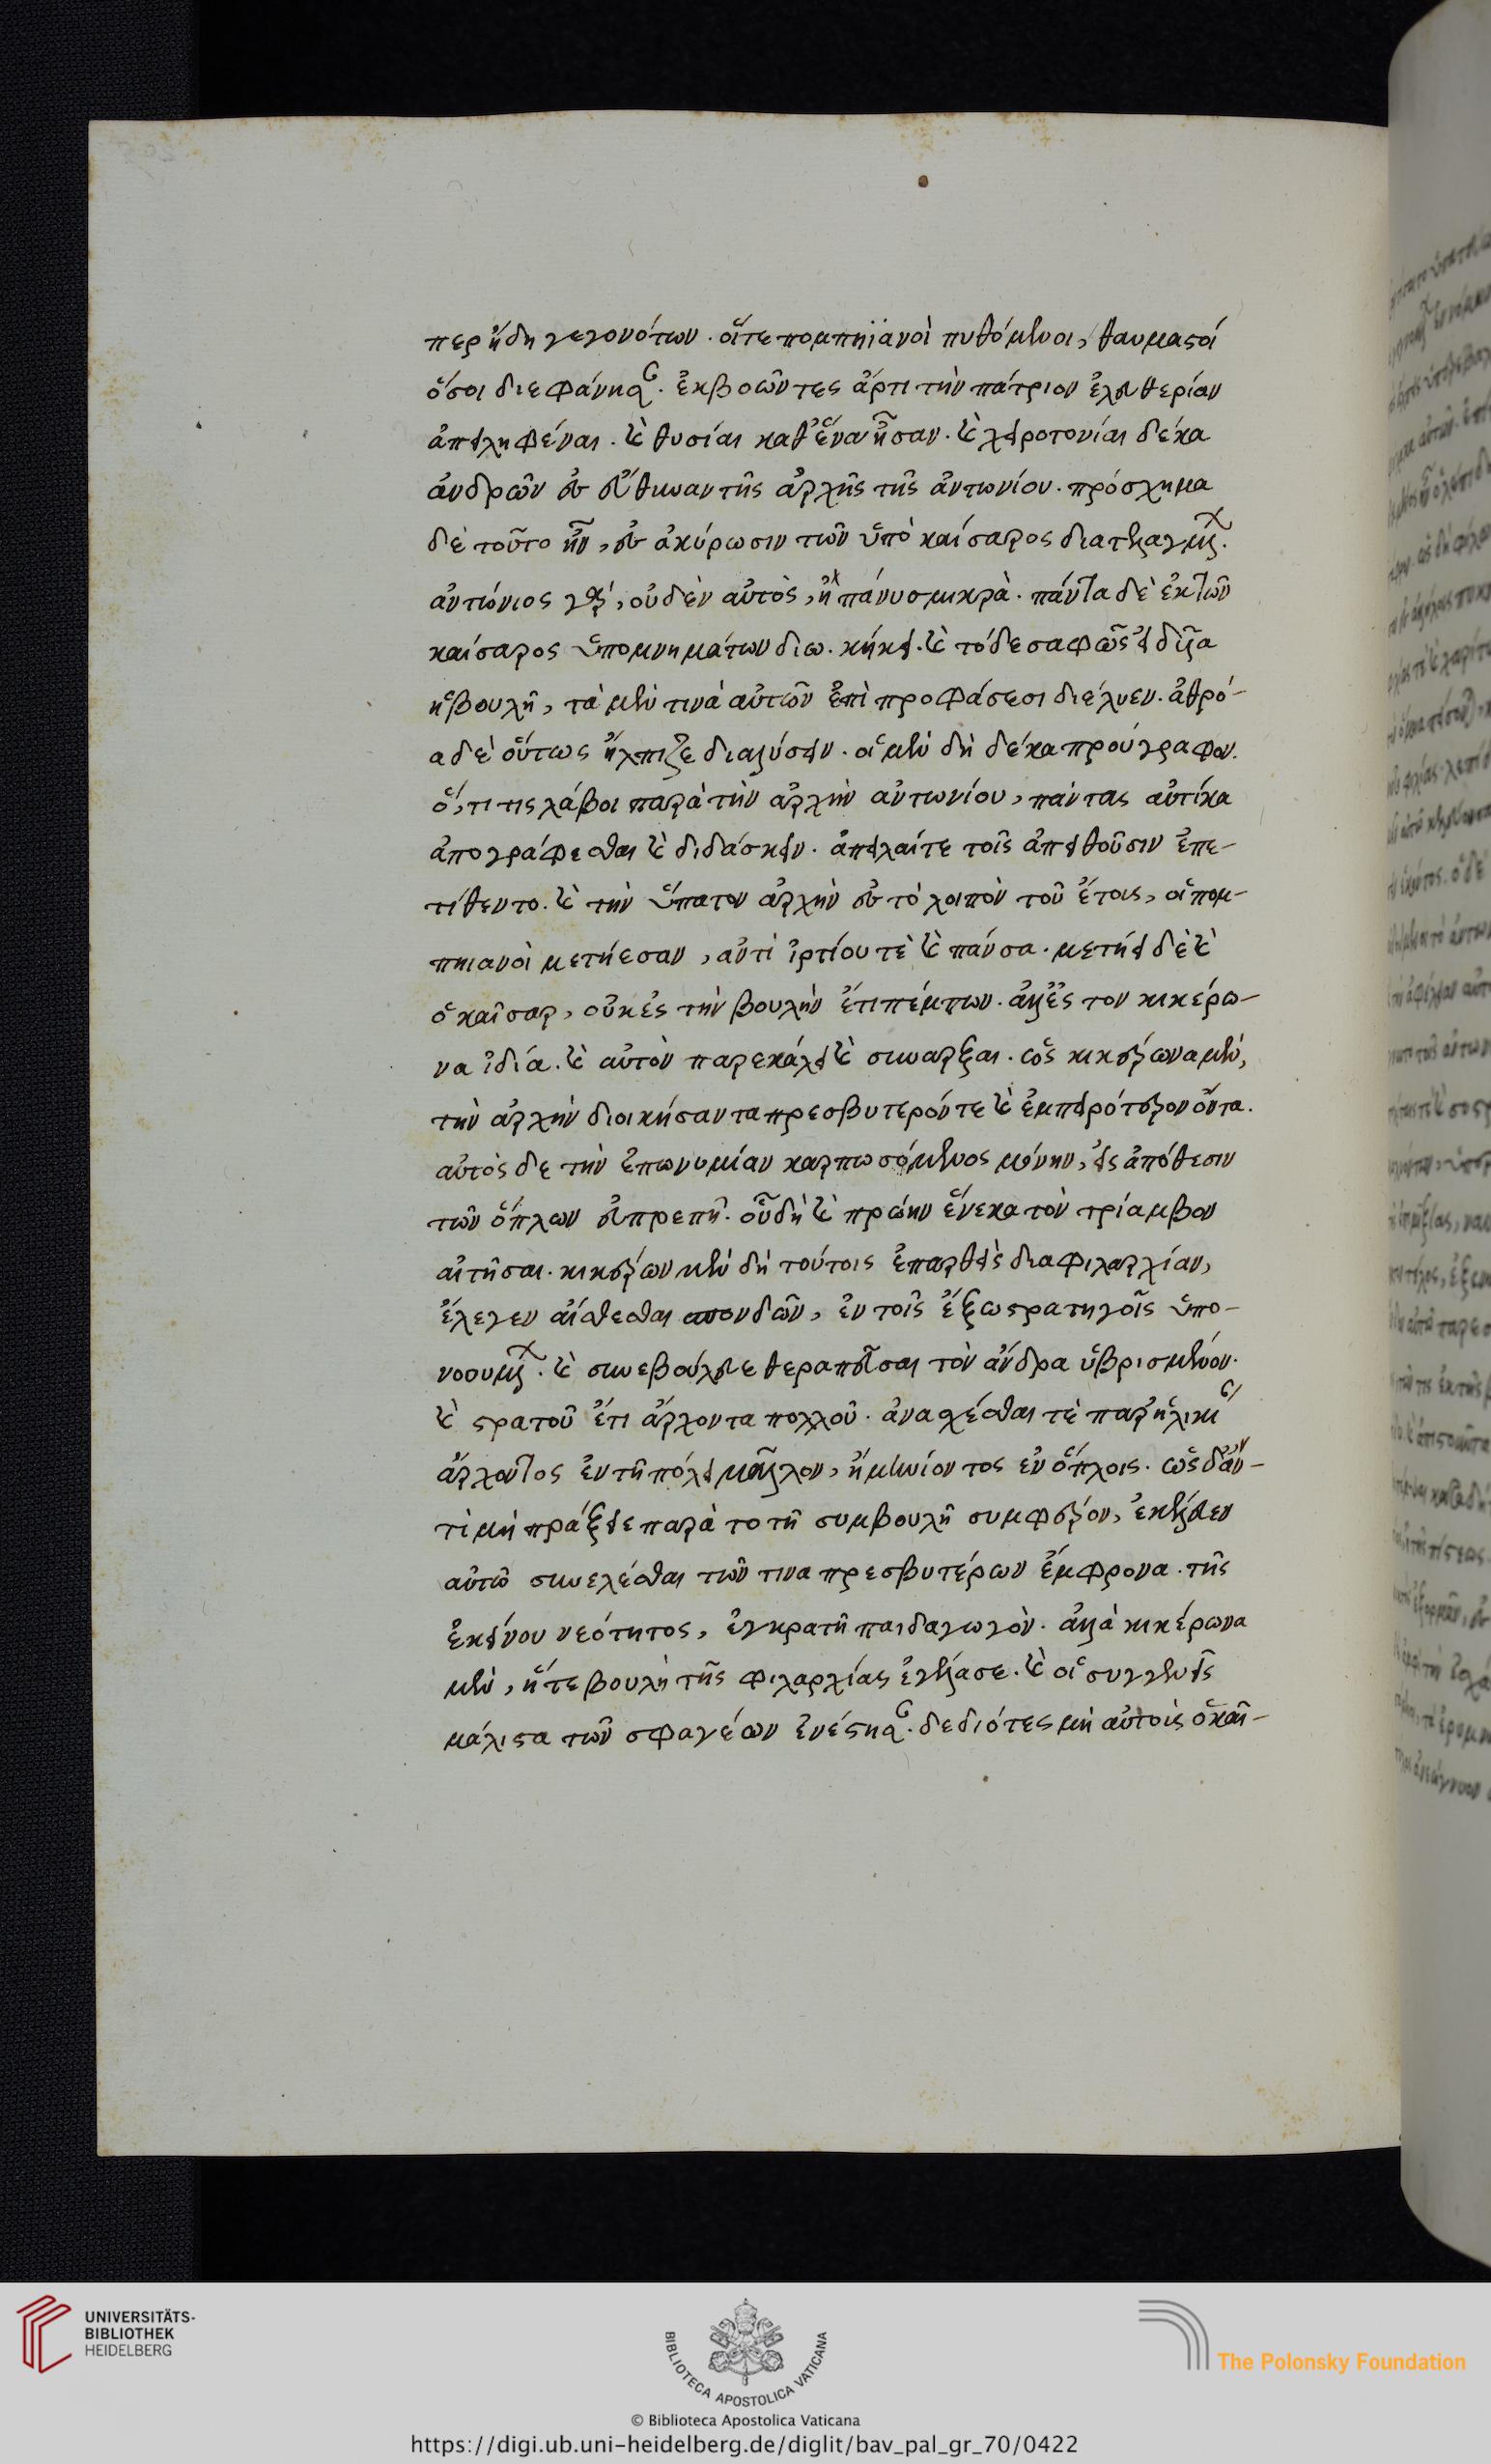 περ ἤδη γεγονότων. οἵτε πομπηϊανοὶ πυθόμενοι, θαυμαστοί
ὅσοι διεφάνησαν. ἐκβοῶντες ἄρτι τὴν πάτριον ἐλευθερίαν
ἀπειληφέναι. καὶ θυσίαι καθ' ἕνα ἦσαν. καὶ χειροτονίαι δέκα
ἀνδρῶν ἐς εὔθυναν τῆς ἀρχῆς τῆς ἀντωνίου. πρόσχημα
δὲ τοῦτο ἦν, ἐς ἀκύρωσιν τῶν ὑπὸ καίσαρος διατεταγμένων.
ἀντώνιος γὰρ, οὐδὲν αὐτὸς, ἢ πάνυ σμικρὰ. πάντα δὲ ἐκ τῶν
καίσαρος ὑπομνημάτων διω. κήκει. καὶ τόδε σαφῶς εἰδυῖα
ἡ βουλὴ, τὰ μὲν τινὰ αὐτῶν ἐπὶ προφάσεσι διέλυεν. ἀθρό-
α δὲ οὕτως ἤλπιζε διαλύσειν. οἱ μὲν δὴ δέκα προύγραφον.
ὅ, τι τις λάβοι παρὰ τὴν ἀρχὴν ἀντωνίου, πάντας αὐτίκα
ἀπογράφεσθαι καὶ διδάσκειν. ἀπειλαί τε τοῖς ἀπειθοῦσιν ἐπε-
τίθεντο. καὶ τὴν ὕπατον ἀρχὴν ἐς τὸ λοιπὸν τοῦ ἔτους, οἱ πομ-
πηιανοὶ μετήεσαν, ἀντὶ ἱρτίου τὲ καὶ πάνσα. μετήει δὲ καὶ
ὁ καῖσαρ, οὐκ ἐς τὴν βουλὴν ἔτι πέμπων. ἀλλ' ἐς τον κικέρω-
να ἰδία. καὶ αὐτὸν παρεκάλει καὶ συνάρξαι. ὡς κικέρωνα μὲν,
τὴν ἀρχὴν διοικήσαντα πρεσβυτερόν τε καὶ ἐμπειρότερον ὄντα.
αὐτὸς δε τὴν ἐπωνυμίαν καρπωσόμενος μόνην, εἰς ἀπόθεσιν
τῶν ὅπλων εὐπρεπῆ. οὗ δὴ καὶ πρώην ἕνεκα τὸν τρίαμβον
αἰτῆσαι. κικέρων μὲν δὴ τούτοις ἐπαρθεὶς δια φιλαρχίαν,
ἔλεγεν αἰσθέσθαι σπονδῶν, ἐν τοῖς ἔξω στρατηγοῖς ὑπο-
νοουμένων. καὶ συνεβούλευε θεραπεῦσαι τὸν ἄνδρα ὑβρισμένον.
καὶ στρατοῦ ἔτι ἄρχοντα πολλοῦ. ἀνασχέσθαι τὲ παρ' ἡλικίαν
ἄρχοντος ἐν τῆ πόλει μᾶλλον, ἢ μηνίοντος ἐν ὅπλοις. ὡς δ' ἄν-
τὶ μὴ πράξειε παρὰ το τῆ συμβουλῆ συμφέρον, ἐκέλευεν
αὐτῶ συνελέσθαι τῶν τινα πρεσβυτέρων ἔμφρονα. τῆς
ἐκείνου νεότητος, ἐγκρατῆ παιδαγωγὸν. ἀλλὰ κικέρωνα
μὲν, ἥ τε βουλὴ τῆς φιλαρχίας ἐγέλασε. καὶ οἱ συγγενεῖς
μάλιστα τῶν σφαγέων ἐνέστησαν. δεδιότες μὴ αὐτοὺς ὁ καῖ-
UNIVERSITÄTS-
BIBLIOTHEK
HEIDELBERG
BIBLIOTECA APOSTOLICA VATICANA
The Polonsky Foundation
© Biblioteca Apostolica Vaticana
https://digi.ub.uni-heidelberg.de/diglit/bav_pal_gr_70/0422